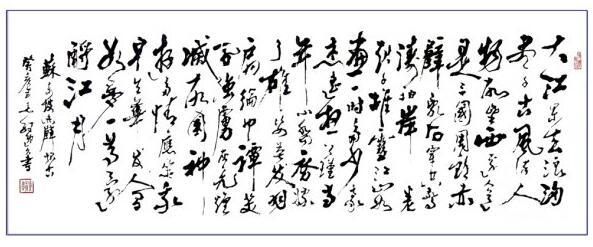 大江東去浪淘
盡千古風流人
物故壘西邊人道
是三國周郎赤
壁亂石穿空驚
濤拍岸卷
起千堆雪江山如
畫一時多少豪
杰遙想公瑾當
年小喬初嫁
了雄姿英發羽
扇綸巾談笑
間強虜灰飛煙
滅故國神
遊多情應笑我
早生華髮人間
如夢一尊還
酹江月